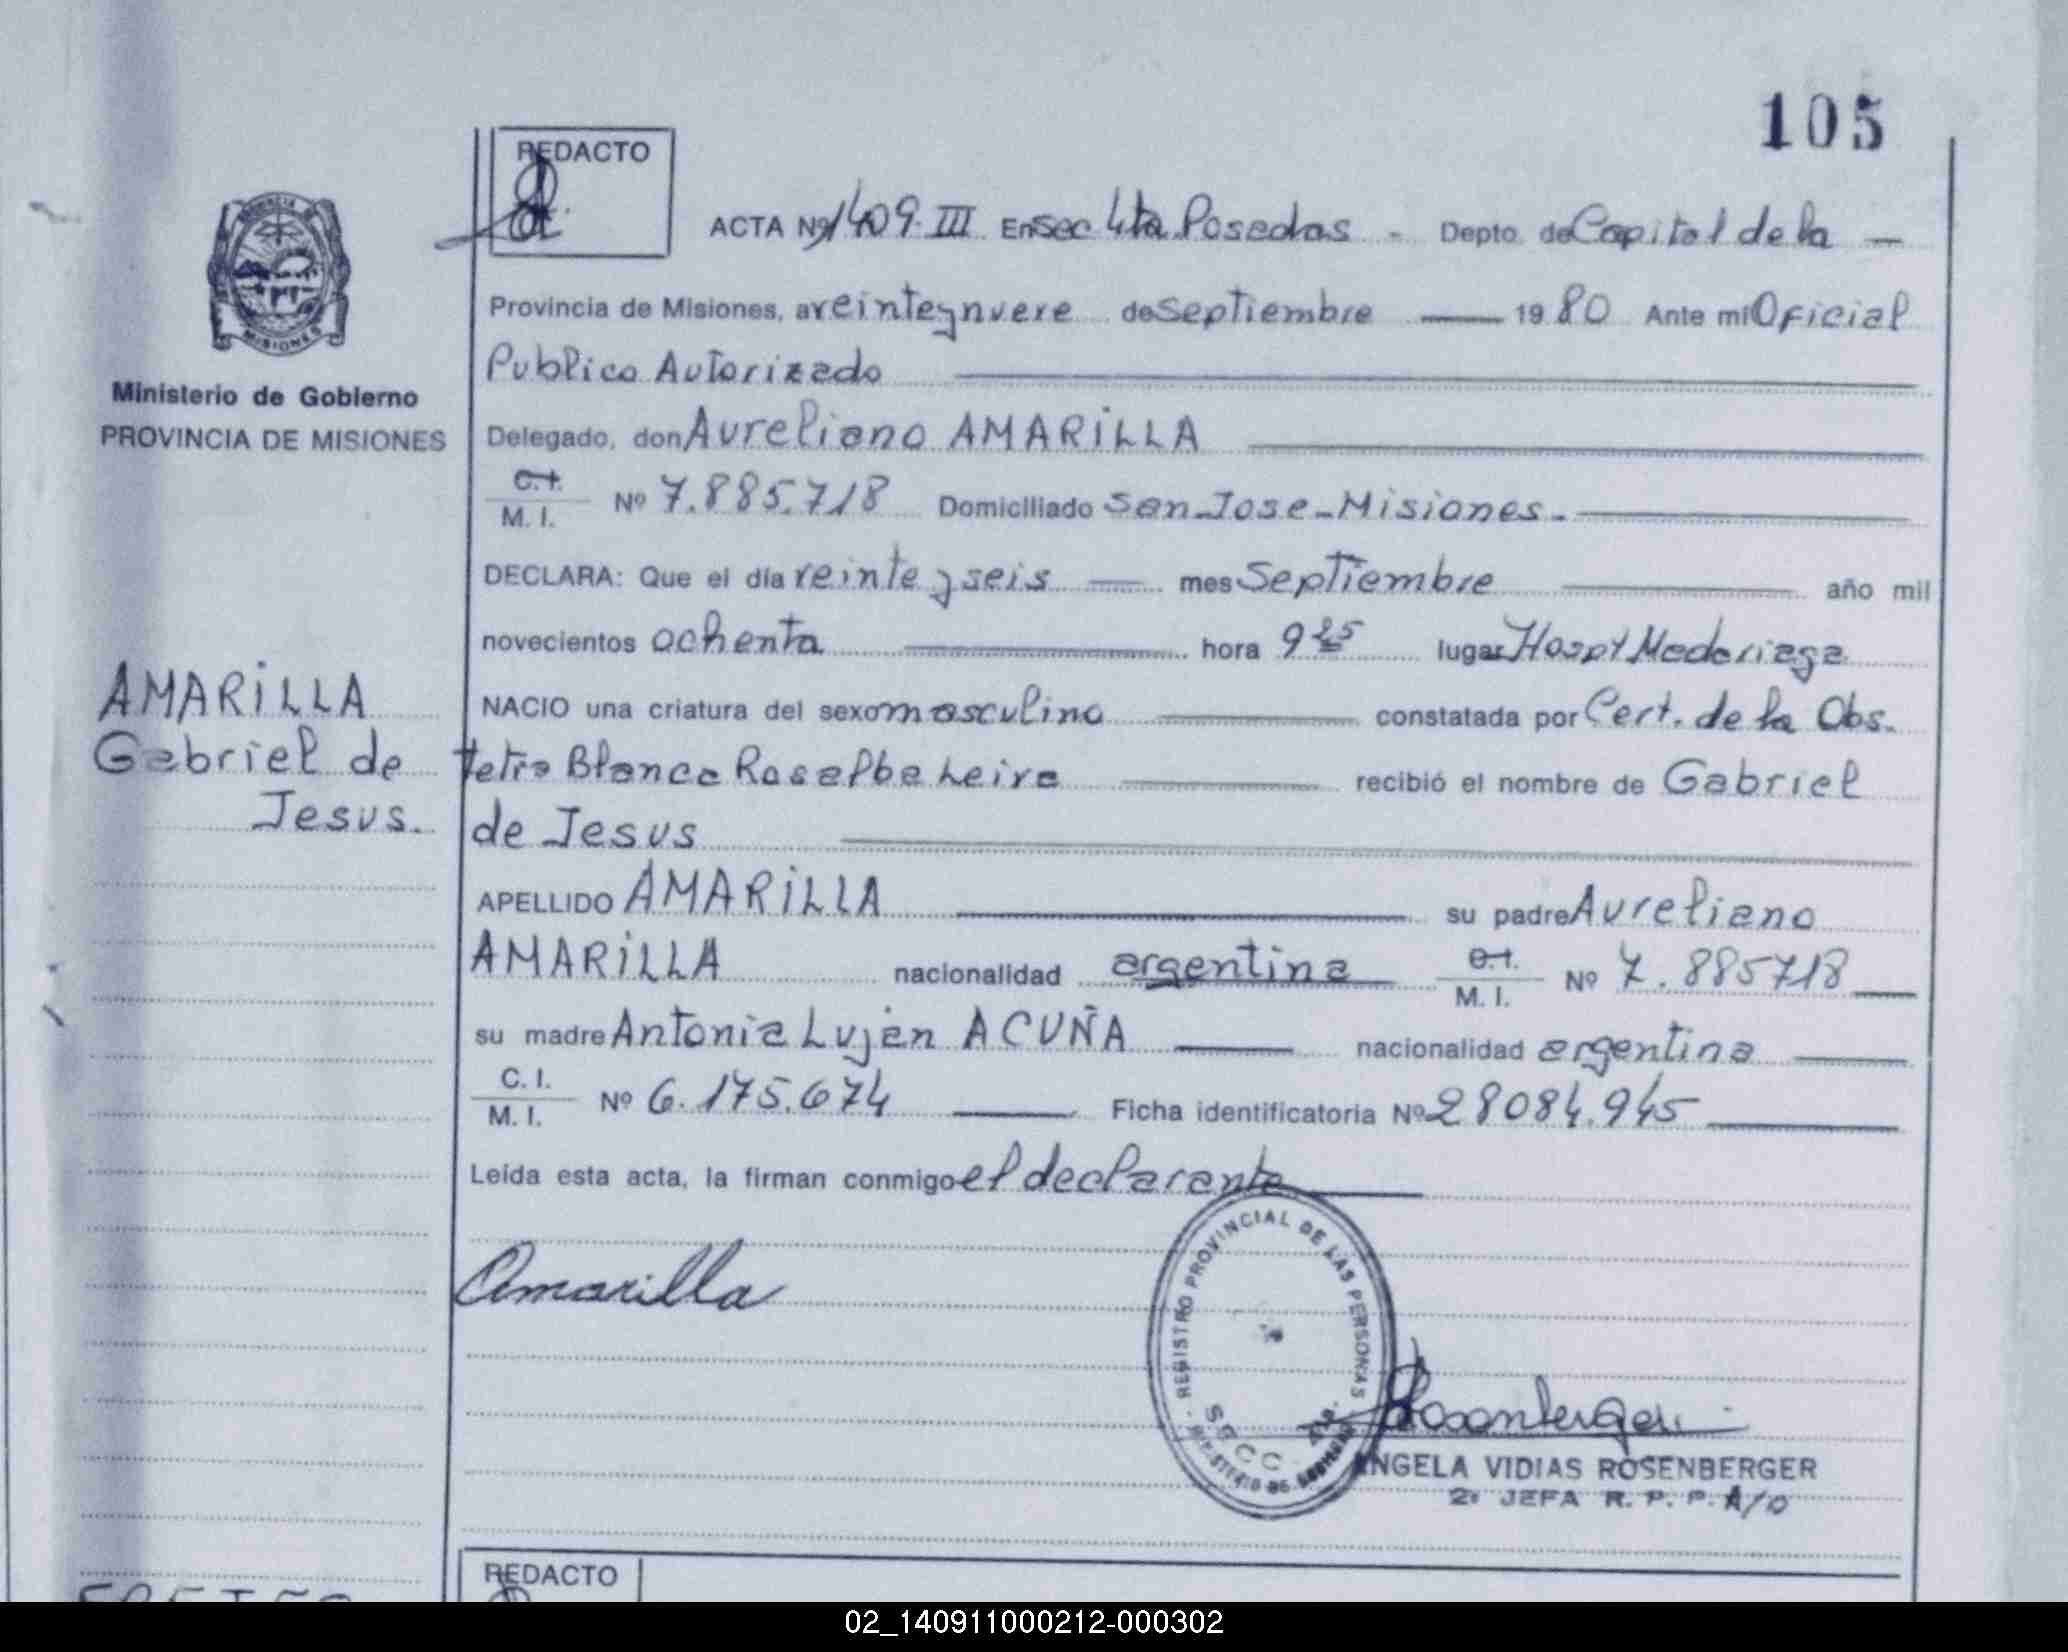 105
REDACTO
ACTA Nº 1409-III En Sec 4ta Posadas - Depto. de Capital de la —
Provincia de Misiones, a veinteynueve de septiembre — 1980 Ante mi Oficial
Publico Autorizado
Delegado, don Aureliano AMARILLA
C.I. M.I. Nº 7.885.718 Domiciliado San Jose - Misiones.-
DECLARA: Que el día veinte y seis — mes Septiembre año mil
novecientos ochenta hora 9 25 lugar Hospt Madariaga
NACIO una criatura del sexo masculino constatada por Cert. de la Obs.
tetra Blanca Rosalba Leiva recibió el nombre de Gabriel
de Jesus
APELLIDO AMARILLA su padre Aureliano
AMARILLA nacionalidad argentina C.I. M.I. Nº 7.885718
su madre Antonia Lujan ACUÑA nacionalidad argentina
C.I. M.I. Nº 6.175.674 Ficha identificatoria Nº 28084.945
Leída esta acta, la firman conmigo el declarante
Amarilla
Rosenberger
ANGELA VIDIAS ROSENBERGER
2ª JEFA R. P. P. A/O
REGISTRO PROVINCIAL DE LAS PERSONAS
MINISTERIO DE GOBIERNO
SECC. 4ta.
PROVINCIA DE
MISIONES
Ministerio de Gobierno
PROVINCIA DE MISIONES
AMARILLA
Gabriel de
Jesus.
REDACTO
02_140911000212-000302